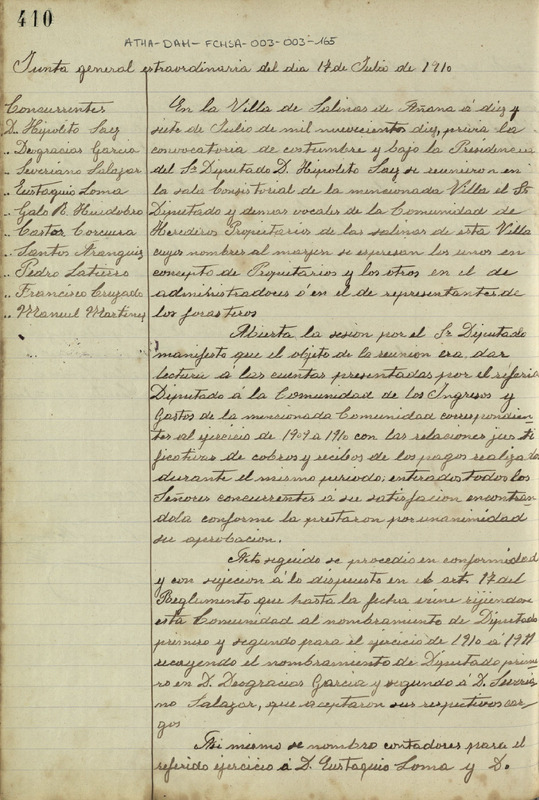 410
ATHA-DAH-FCHSA-003-003-165
Junta general extraordinaria del dia 17 de Julio de 1910
Concurrentes
D. Hipolito Saez
„ Deogracias Garcia
„ Severiano Salazar
„ Eustaquio Loma
„ Galo R. Huidobro
„ Castor Corcuera
„ Santos Aranguiz
„ Pedro Latierro
„ Francisco Cruzado
„ Manuel Martinez
En la Villa de Salinas de Añana á diez y
siete de Julio de mil nuevecientos diez, previa la
convocatoria de costumbre y bajo la Presidencia
del Sr Diputado D. Hipolito Saez se reunieron en
la sala Consistorial de la mencionada Villa el Sr
Diputado y demas vocales de la Comunidad de
Herederos Propietarios de las salinas de esta Villa
cuyos nombres al marjen se espresan los unos en
concepto de Propietarios y los otros en el de
administradores ó en el de representantes de
los forasteros
Abierta la sesion por el Sr Diputado
manifesto que el objeto de la reunion era, dar
lectura á las cuentas presentadas por el referido
Diputado á la Comunidad de los Ingresos y
Gastos de la mencionada Comunidad correspondien-
tes al ejercicio de 1909 a 1910 con las relaciones justi
ficativas de cobros y recibos de los pagos realizados
durante el mismo periodo, enterados todos los
Señores concurrentes a su satisfacion encontran-
dola conforme la prestaron por unanimidad
su aprobacion.
Acto seguido se procedio en conformidad
y con sujeccion á lo dispuesto en el art. 17 del
Reglamento que hasta la fecha viene rijiendose
esta Comunidad al nombramiento de Diputado
primero y segundo para el ejercicio de 1910 á 1911
recayendo el nombramiento de Diputado prime-
ro en D. Deogracias Garcia y segundo á D. Severia
no Salazar, que aceptaron sus respectivos car-
gos
Asi mismo se nombro contadores para el
referido ejercicio á D. Eustaquio Loma y D.